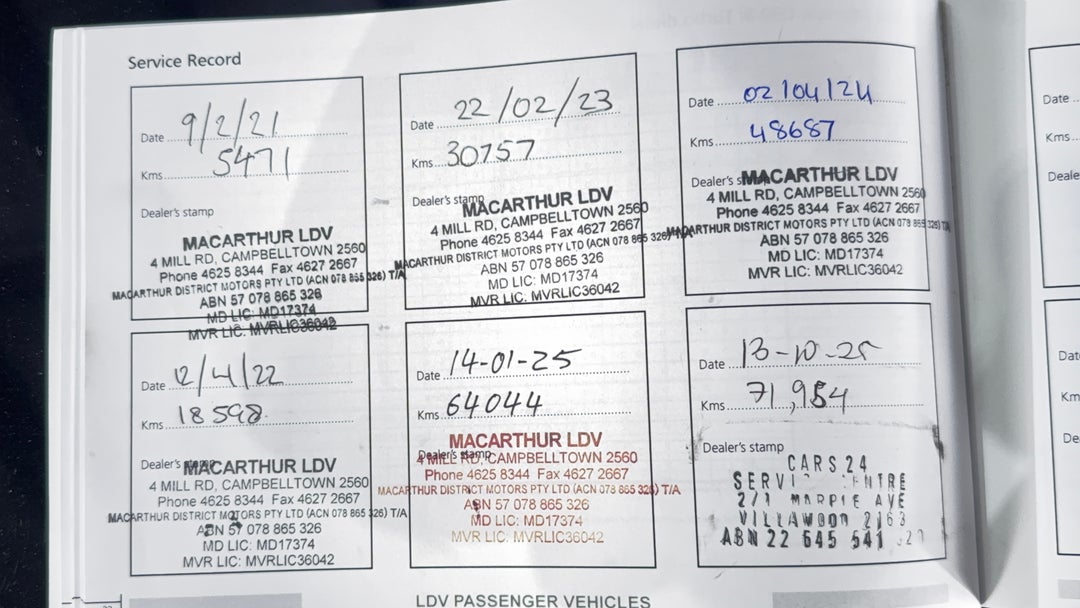 Service Record
Date 9/2/21
Kms 5471
Dealer's stamp
MACARTHUR LDV
4 MILL RD, CAMPBELLTOWN 2560
Phone 4625 8344 Fax 4627 2667
MACARTHUR DISTRICT MOTORS PTY LTD (ACN 078 865 326) T/A
ABN 57 078 865 326
MD LIC: MD17374
MVR LIC: MVRLIC36042
Date 22/02/23
Kms 30757
Dealer's stamp
MACARTHUR LDV
4 MILL RD, CAMPBELLTOWN 2560
Phone 4625 8344 Fax 4627 2667
MACARTHUR DISTRICT MOTORS PTY LTD (ACN 078 865 326) T/A
ABN 57 078 865 326
MD LIC: MD17374
MVR LIC: MVRLIC36042
Date 02/04/24
Kms 48687
Dealer's
MACARTHUR LDV
4 MILL RD, CAMPBELLTOWN 2560
Phone 4625 8344 Fax 4627 2667
MACARTHUR DISTRICT MOTORS PTY LTD (ACN 078 865 326) T/A
ABN 57 078 865 326
MD LIC: MD17374
MVR LIC: MVRLIC36042
Date 12/4/22
Kms 18598
Dealer's stamp
MACARTHUR LDV
4 MILL RD, CAMPBELLTOWN 2560
Phone 4625 8344 Fax 4627 2667
MACARTHUR DISTRICT MOTORS PTY LTD (ACN 078 865 326) T/A
ABN 57 078 865 326
MD LIC: MD17374
MVR LIC: MVRLIC36042
Date 14-01-25
Kms 64044
Dealer's stamp
MACARTHUR LDV
4 MILL RD, CAMPBELLTOWN 2560
Phone 4625 8344 Fax 4627 2667
MACARTHUR DISTRICT MOTORS PTY LTD (ACN 078 865 326) T/A
ABN 57 078 865 326
MD LIC: MD17374
MVR LIC: MVRLIC36042
Date 13-10-25
Kms 71,954
Dealer's stamp
CARS 24
2/1 AVE
VILLAWOOD 2163
ABN 22 645 541
LDV PASSENGER VEHICLES
Date
Kms